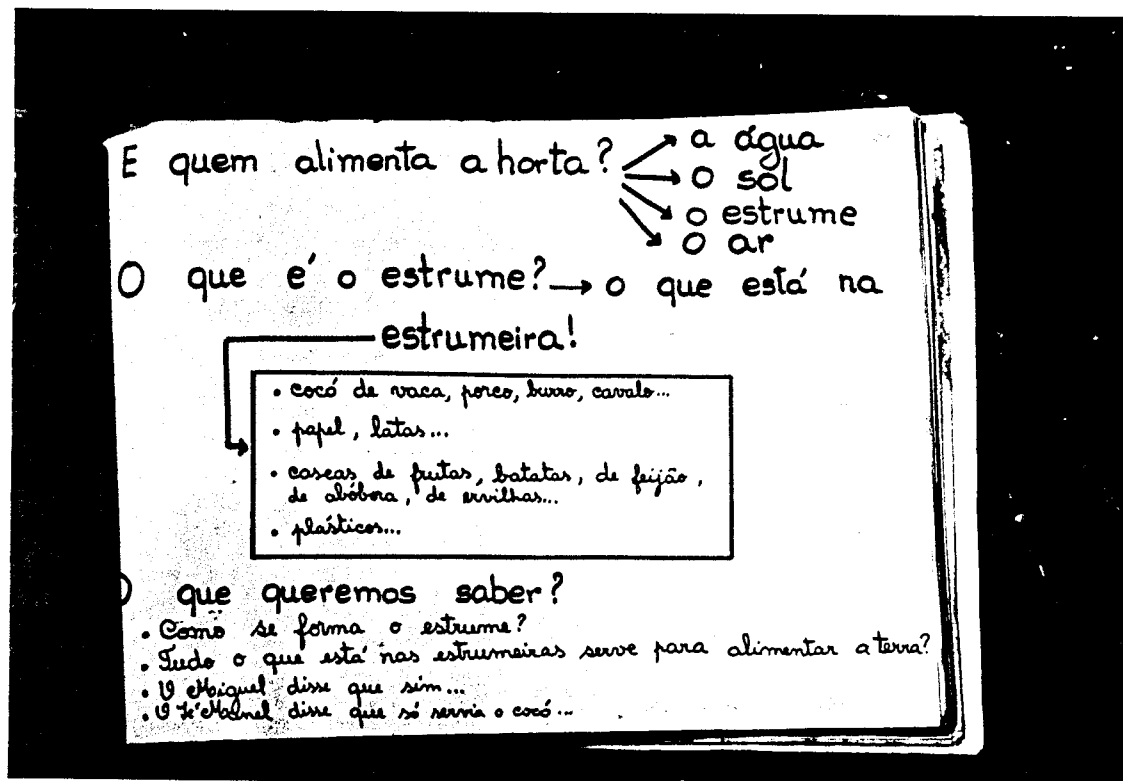 E quem alimenta a horta? → a água
→ o sol
→ o estrume
→ o ar
O que é o estrume? → o que está na
estrumeira!
• cocó de vaca, porco, burro, cavalo...
• papel, latas...
• cascas de frutas, batatas, de feijão,
de abóbora, de ervilhas...
• plásticos...
O que queremos saber?
• Como se forma o estrume?
• Tudo o que está nas estrumeiras serve para alimentar a terra?
• O Miguel disse que sim...
• O Zé Manel disse que só servia o cocó...